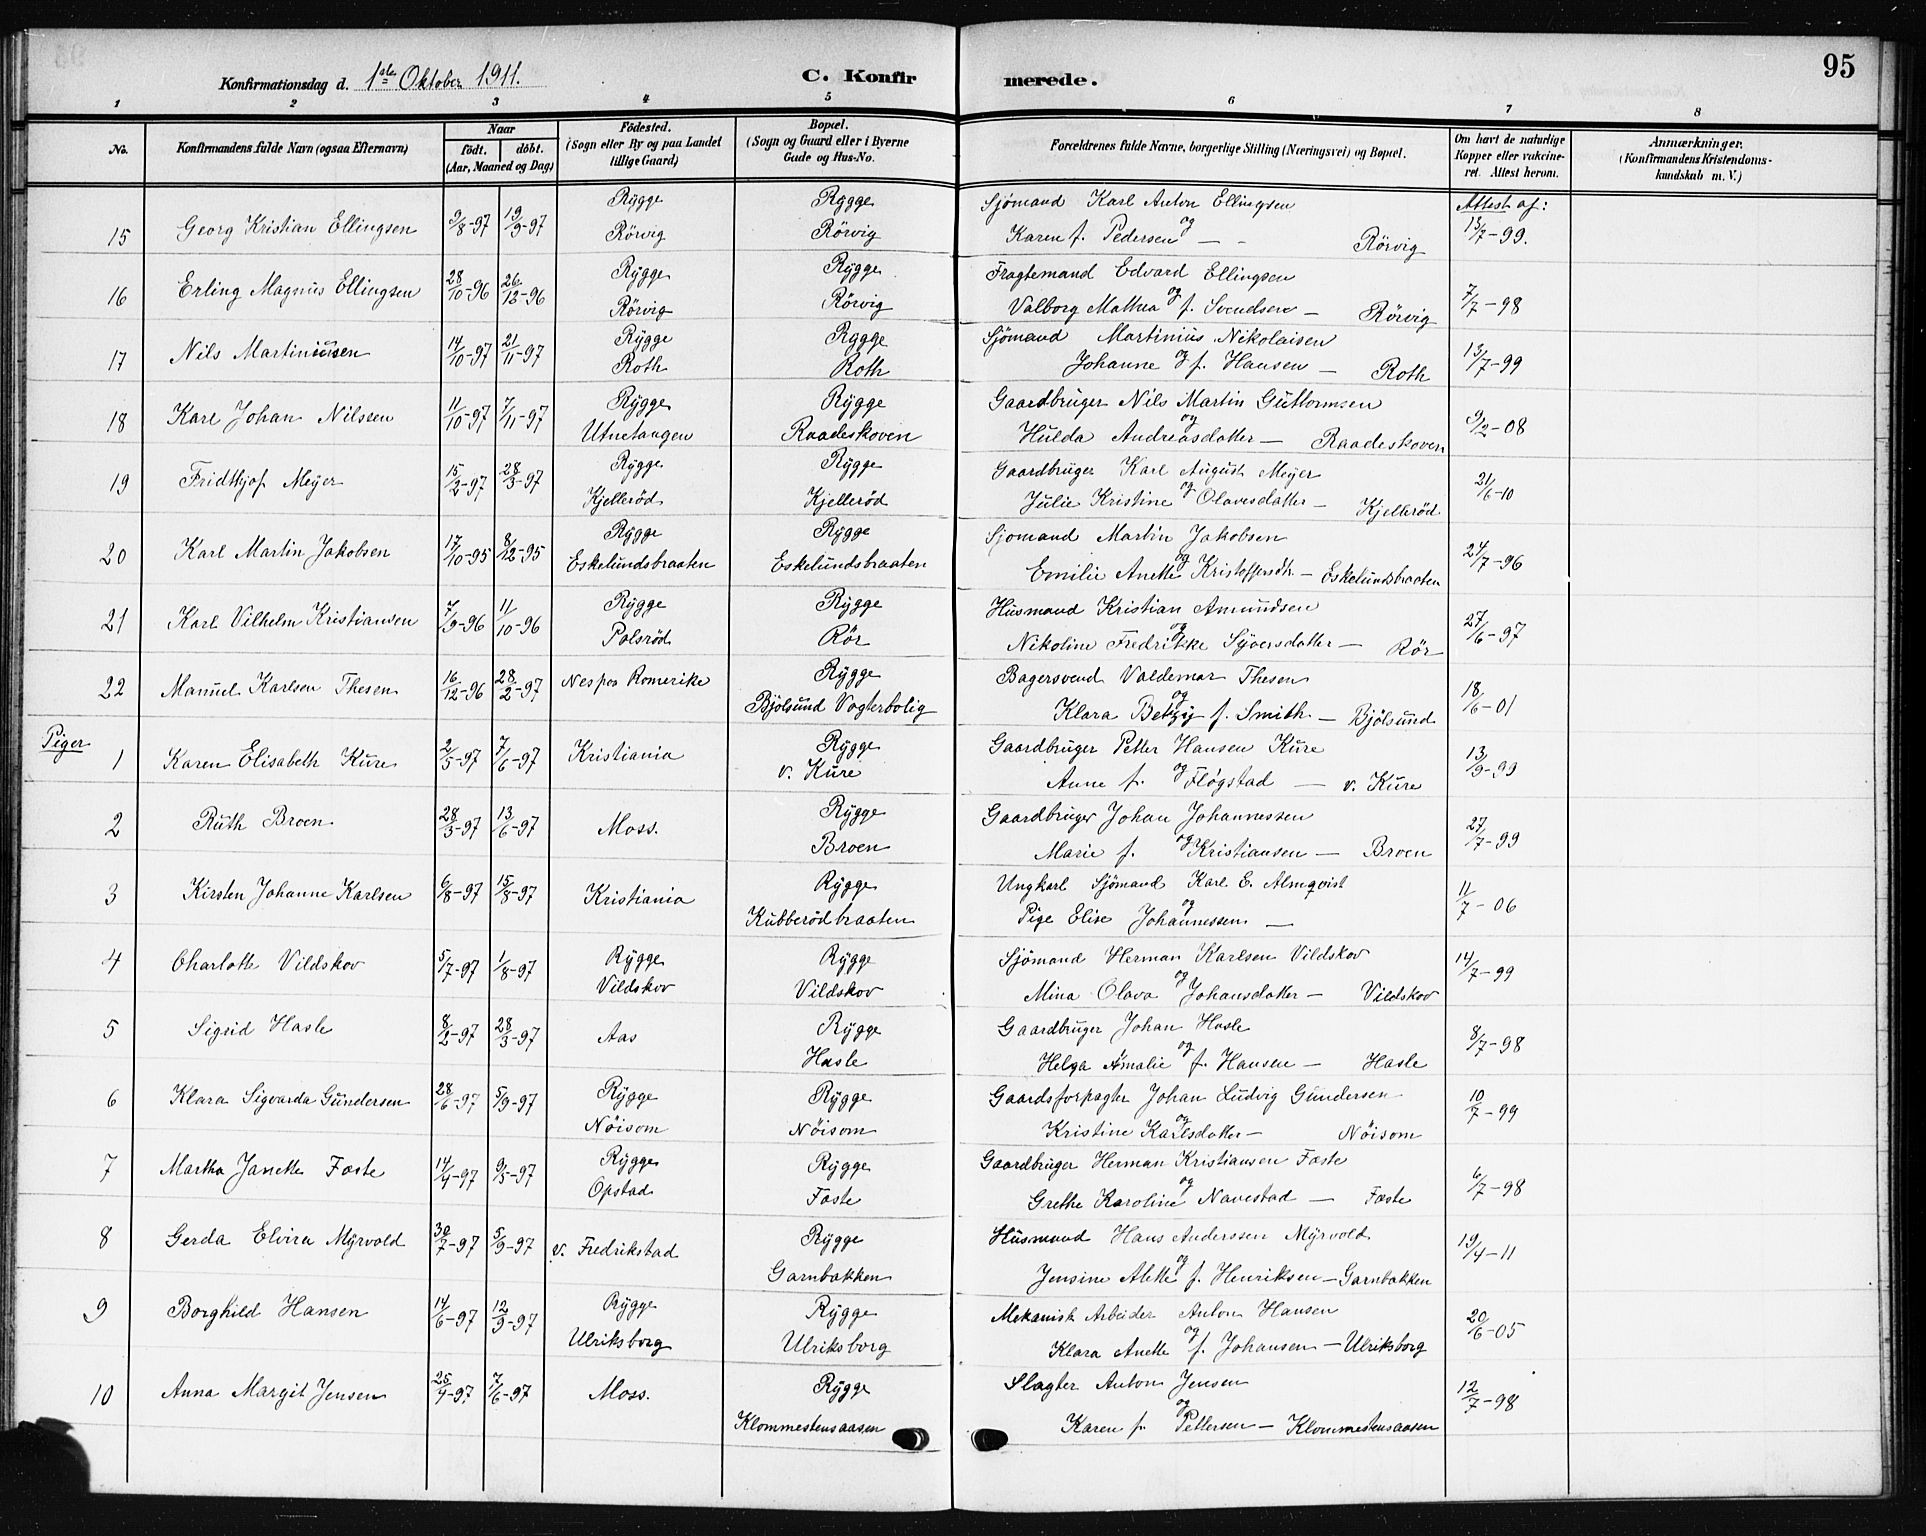 95
Konfirmationsdag d. 1ste Oktober 1911.
C. Konfirmerede.
1 2 3 4 5 6 7 8
No.
Konfirmandens fulde Navn (ogsaa Efternavn)
Naar
født. døbt.
(Aar, Maaned og Dag)
Fødested.
(Sogn eller By og paa Landet
tillige Gaard)
Bopæl.
(Sogn og Gaard eller i Byerne
Gade og Hus-No.
Forældrenes fulde Navne, borgerlige Stilling (Næringsvei) og Bopæl.
Om havt de naturlige
Kopper eller vakcine-
ret. Attest herom.
Anmærkninger.
(Konfirmandens Kristendoms-
kundskab m. V.)
Rygge Rygge Sjømand Karl Anton Ellingsen Attest af:
15 Georg Kristian Ellingsen 9/8-97 19/9-97 Rörvig Rörvig og Karen f. Pedersen — Rörvig 13/7-99.
Rygge Rygge Fragtemand Edvard Ellingsen
16 Erling Magnus Ellingsen 28/10-96 26/12-96 Rörvig Rörvig og Valborg Mathea f. Svendsen — Rörvig 7/7-98
Rygge Rygge Sjømand Martinius Nikolaisen
17 Nils Martiniusen 14/10-97 21/11-97 Roth Roth og Johanne f. Hansen — Roth 13/7-99
Rygge Rygge Gaardbruger Nils Martin Guttormsen
18 Karl Johan Nilssen 11/10-97 7/11-97 Utnetangen Raadeskoven og Hulda Andreasdatter — Raadeskoven 9/2-08
Rygge Rygge Gaardbruger Karl August Meyer
19 Fridthjof Meyer 15/2-97 28/3-97 Kjellerød Kjellerød og Julie Kristine Olavesdatter — Kjellerød 21/6-10
Rygge Rygge Sjømand Martin Jakobsen
20 Karl Martin Jakobsen 17/10-95 8/12-95 Eskelundsbraaten Eskelundsbraaten og Emilie Anette Kristoffersdtr. — Eskelundsbraaten 24/7-96
Rygge Rygge Husmand Kristian Amundsen
21 Karl Vilhelm Kristiansen 7/9-96 11/10-96 Polsrød Rör og Nikoline Fredrikke Syversdatter — Rör 27/6-97
Nes paa Romerike Rygge Bagersvend Valdemar Thesen
22 Manuel Karlsen Thesen 16/12-96 28/2-97 Bjölsund Vogterbolig og Klara Betzy f. Smith — Bjölsund 18/6-01
Piger
Kristiania Rygge Gaardbruger Petter Hansen Kure
1 Karen Elisabeth Kure 2/5-97 7/6-97 v. Kure og Anne f. Fløgstad — v. Kure 13/9-99
Rygge Gaardbruger Johan Johannessen
2 Ruth Broen 28/3-97 13/6-97 Moss. Broen og Marie f. Kristiansen — Broen 27/7-99
Rygge Ungkarl Sjømand Karl E. Almqvist
3 Kirsten Johanne Karlsen 6/8-97 15/8-97 Kristiania Kubberødbraaten og Pige Elise Johannessen — 11/7-06
Rygge Rygge Sjømand Herman Karlsen Vildskov
4 Charlotte Vildskov 5/7-97 1/8-97 Vildskov Vildskov og Mina Olava Johansdatter — Vildskov 14/7-99
Rygge Gaardbruger Johan Hasle
5 Sigrid Hasle 8/2-97 28/3-97 Aas Hasle og Helga Amalie f. Hansen — Hasle 8/7-98
Rygge Rygge Gaardsforpagter Johan Ludvig Gundersen
6 Klara Sigvarda Gundersen 28/6-97 5/9-97 Nöisom Nöisom og Kristine Karlsdatter — Nöisom 10/7-99
Rygge Rygge Gaardbruger Herman Kristiansen Faste
7 Martha Janette Faste 14/4-97 9/5-97 Opstad Faste og Grethe Karoline Navestad — Faste 6/7-98
Rygge Husmand Hans Anderssen Myrvold
8 Gerda Elvira Myrvold 30/7-97 5/9-97 v. Fredrikstad Garnbakken og Jensine Alette f. Henriksen — Garnbakken 19/4-11
Rygge Rygge Mekanisk Arbeider Anton Hansen
9 Borghild Hansen 14/6-97 12/9-97 Ulriksborg Ulriksborg og Klara Anette f. Johansen — Ulriksborg 20/6-05
Rygge Slagter Anton Jensen
10 Anna Margit Jensen 25/4-97 7/6-97 Moss. Klommestensaasen og Karen f. Pettersen — Klommestensaasen 12/7-98